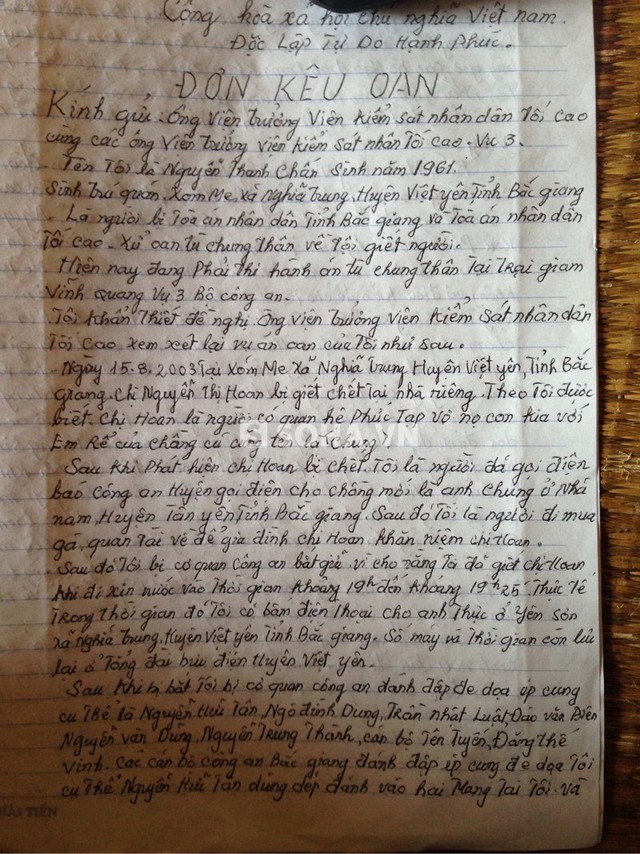 Cộng hoà xã hội chủ nghĩa Việt nam.
Độc Lập Tự Do Hạnh Phúc.
ĐƠN KÊU OAN
Kính gửi: Ông Viện trưởng Viện Kiểm sát nhân dân Tối cao
cùng các ông Viện trưởng viện kiểm sát nhân Tối cao. Vụ 3.
Tên Tôi là Nguyễn Thanh Chấn Sinh năm 1961.
Sinh trú quán. Xóm Me, xã Nghĩa Trung, Huyện Việt yên, Tỉnh Bắc giang
- Là người bị Toà an nhân dân Tỉnh Bắc giang và Toà an nhân dân
Tối cao. Xử oan tù chung thân về Tội giết người.
Hiện nay đang Phải thi hành án tù chung thân Tại Trại giam
Vĩnh Quang Vụ 3 Bộ công an.
Tôi Khẩn Thiết đề nghị Ông Viện Trưởng Viện Kiểm Sát nhân dân
Tối Cao Xem xét lại vụ án oan của Tôi như sau.
- Ngày 15.8.2003 Tại Xóm Me Xã Nghĩa Trung Huyện Việt yên, Tỉnh Bắc
Giang. Chị Nguyễn Thị Hoan bị giết chết Tại nhà riêng. Theo Tôi được
biết. Chị Hoan là người có quan hệ Phức Tạp vô nọ con kia với
Em Rể của chồng cũ cùng tên là "chung"
Sau Khi Phát hiện chị Hoan bị chết. Tôi là người đã gọi điện
báo công an Huyện gọi điện cho chồng mới là anh Chúng ở Nhã
nam, Huyện Tân yên, Tỉnh Bắc giang. Sau đó Tôi là người đi mua
ga, quan Tài về để gia đình chị Hoan Khân niệm chị Hoan.
Sau đó Tôi bị cơ quan công an bắt giữ vì cho rằng Tôi đã giết chị Hoan
Khi đi xin nước vào Thời gian Khoảng 19h đến Khoảng 19h25'. Thực Tế
Trong thời gian đó Tôi có bấm điện Thoại cho anh Thực ở Yên sơn
xã Nghĩa Trung, Huyện Việt yên Tỉnh Bắc giang. Số máy và Thời gian con lưu
lại ở Tổng đài bưu điện Huyện Việt yên.
Sau Khi bị bắt Tôi bị cơ quan công an đánh đập đe doạ ép cung
cụ Thể là Nguyễn Hữu Tân, Ngô đình Dung, Trần nhật Luật, Đào văn Biên
Nguyễn văn Dũng. Nguyễn Trung Thành, cán bộ Tên Tuyến, Đặng thế
Vinh. Các cán bộ công an Bắc giang đánh đập ép cung đe doạ Tôi
cụ Thể Nguyễn Hữu Tân dùng dép đánh vào hai Mang Tai Tôi. Và